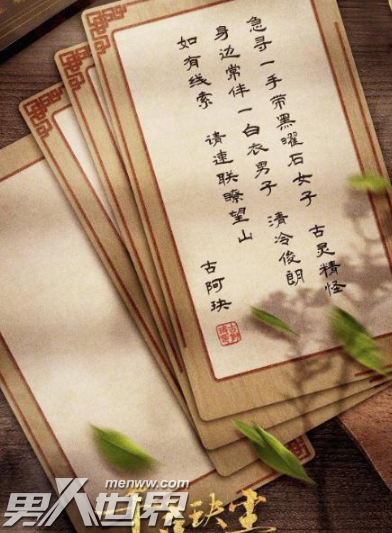 急寻一手带黑曜石女子 古灵精怪
身边常伴一白衣男子 清冷俊朗
如有线索 请速联瞭望山
古阿玦
玦堂
男人世界
menww.com